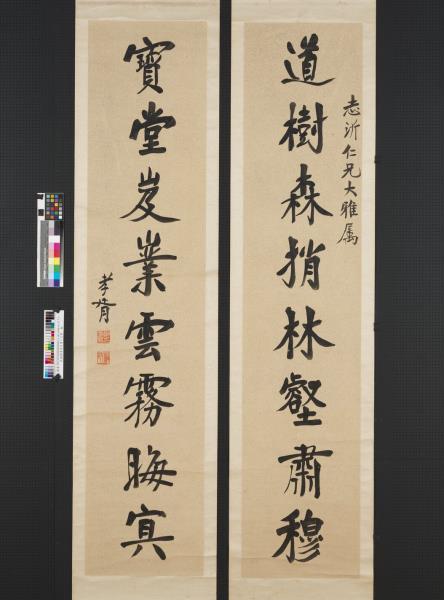 道樹森捎林壑肅穆
志沂仁兄大雅属
寶堂岌業雲霧晦冥
孝胥